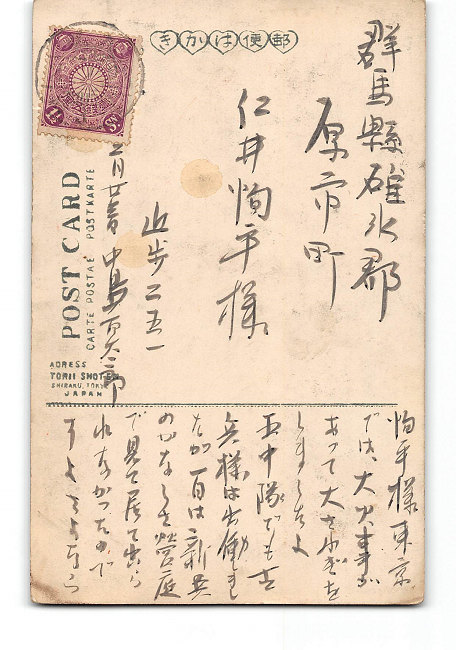 きかは便郵
群馬縣碓氷郡
原市町
仁井恂平様
近歩二五一
中島
POST CARD
CARTE POSTAE POSTKARTE
ADRESS
TORII SHOTE
SHIBAKU, TOKYO
JAPAN
1½
Sn.
恂平様東京
では、大火事が
あって大さわぎを
しましたよ
五中隊でも古
兵様は出働しまし
たが一百は新兵
のかなしさ営庭
で見て居て出ら
れなかつたので
すよさよなら